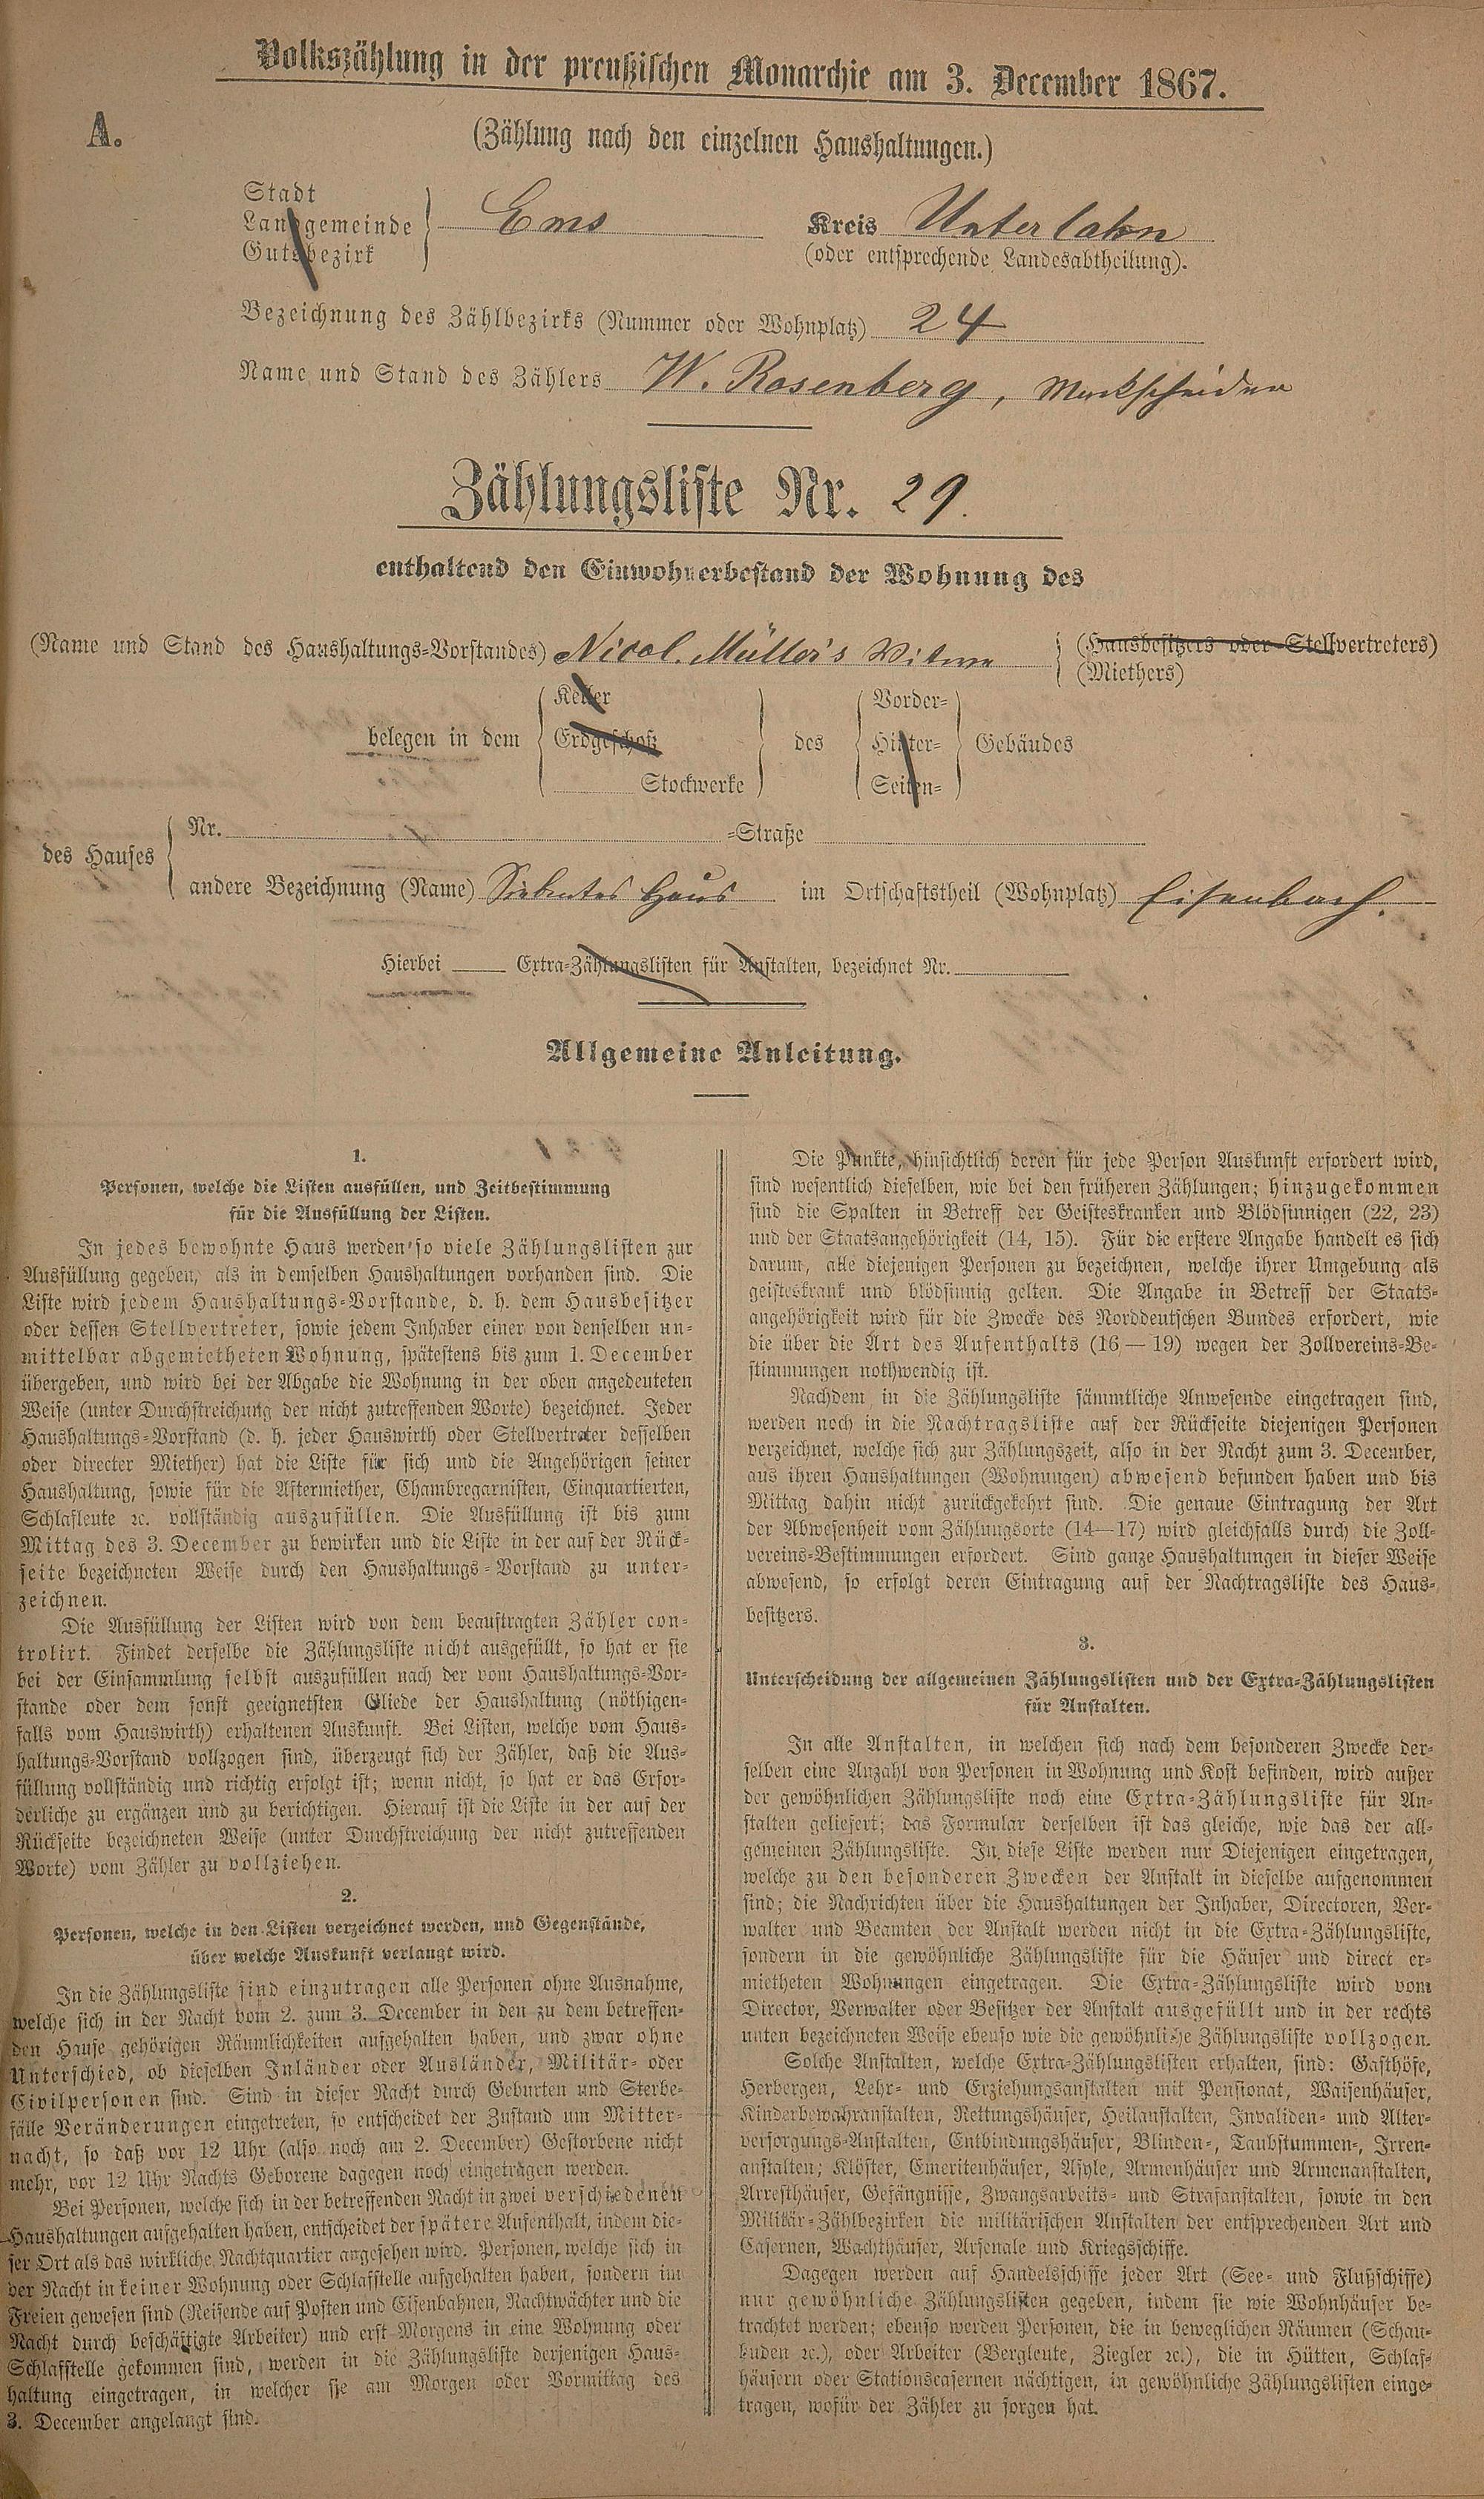 Volkszählung in der preußischen Monarchie am 3. December 1867.
A.
(Zählung nach den einzelnen Haushaltungen.)
Stadt
Landgemeinde
Gutsbezirk
Ems
Kreis Unterlahn
(oder entsprechende Landesabtheilung).
Bezeichnung des Zählbezirks (Nummer oder Wohnplatz) 24
Name und Stand des Zählers W. Rosenberg, Markscheider
Zählungsliste Nr. 29.
enthaltend den Einwohnerbestand der Wohnung des
(Name und Stand des Haushaltungs-Vorstandes) Nicol. Müller's Witwe
(Hausbesitzers oder Stellvertreters)
(Miethers)
belegen in dem
Keller
Erdgeschoß
Stockwerke
des
Vorder-
Hinter-
Seiten-
Gebäudes
des Hauses
Nr. -Straße
andere Bezeichnung (Name) Siebentes Haus im Ortschaftstheil (Wohnplatz) Eisenbach.
Hierbei Extra-Zählungslisten für Anstalten, bezeichnet Nr.
Allgemeine Anleitung.
1.
Personen, welche die Listen ausfüllen, und Zeitbestimmung
für die Ausfüllung der Listen.
In jedes bewohnte Haus werden so viele Zählungslisten zur
Ausfüllung gegeben, als in demselben Haushaltungen vorhanden sind. Die
Liste wird jedem Haushaltungs-Vorstande, d. h. dem Hausbesitzer
oder dessen Stellvertreter, sowie jedem Inhaber einer von denselben un-
mittelbar abgemietheten Wohnung, spätestens bis zum 1. December
übergeben, und wird bei der Abgabe die Wohnung in der oben angedeuteten
Weise (unter Durchstreichung der nicht zutreffenden Worte) bezeichnet. Jeder
Haushaltungs-Vorstand (d. h. jeder Hauswirth oder Stellvertreter desselben
oder directer Miether) hat die Liste für sich und die Angehörigen seiner
Haushaltung, sowie für die Aftermiether, Chambregarnisten, Einquartierten,
Schlafleute ꝛc. vollständig auszufüllen. Die Ausfüllung ist bis zum
Mittag des 3. December zu bewirken und die Liste in der auf der Rück-
seite bezeichneten Weise durch den Haushaltungs-Vorstand zu unter-
zeichnen.
Die Ausfüllung der Listen wird von dem beauftragten Zähler con-
trolirt. Findet derselbe die Zählungsliste nicht ausgefüllt, so hat er sie
bei der Einsammlung selbst auszufüllen nach der vom Haushaltungs-Vor-
stande oder dem sonst geeignetsten Gliede der Haushaltung (nöthigen-
falls vom Hauswirth) erhaltenen Auskunft. Bei Listen, welche vom Haus-
haltungs-Vorstand vollzogen sind, überzeugt sich der Zähler, daß die Aus-
füllung vollständig und richtig erfolgt ist; wenn nicht, so hat er das Erfor-
derliche zu ergänzen und zu berichtigen. Hierauf ist die Liste in der auf der
Rückseite bezeichneten Weise (unter Durchstreichung der nicht zutreffenden
Worte) vom Zähler zu vollziehen.
2.
Personen, welche in den Listen verzeichnet werden, und Gegenstände,
über welche Auskunft verlangt wird.
In die Zählungsliste sind einzutragen alle Personen ohne Ausnahme,
welche sich in der Nacht vom 2. zum 3. December in den zu dem betreffen-
den Hause gehörigen Räumlichkeiten aufgehalten haben, und zwar ohne
Unterschied, ob dieselben Inländer oder Ausländer, Militär- oder
Civilpersonen sind. Sind in dieser Nacht durch Geburten und Sterbe-
fälle Veränderungen eingetreten, so entscheidet der Zustand um Mitter-
nacht, so daß vor 12 Uhr (also noch am 2. December) Gestorbene nicht
mehr, vor 12 Uhr Nachts Geborene dagegen noch eingetragen werden.
Bei Personen, welche sich in der betreffenden Nacht in zwei verschiedenen
Haushaltungen aufgehalten haben, entscheidet der spätere Aufenthalt, indem die-
ser Ort als das wirkliche Nachtquartier angesehen wird. Personen, welche sich in
der Nacht in keiner Wohnung oder Schlafstelle aufgehalten haben, sondern im
Freien gewesen sind (Reisende auf Posten und Eisenbahnen, Nachtwächter und die
Nacht durch beschäftigte Arbeiter) und erst Morgens in eine Wohnung oder
Schlafstelle gekommen sind, werden in die Zählungsliste derjenigen Haus-
haltung eingetragen, in welcher sie am Morgen oder Vormittag des
3. December angelangt sind.
Die Punkte, hinsichtlich deren für jede Person Auskunft erfordert wird,
sind wesentlich dieselben, wie bei den früheren Zählungen; hinzugekommen
sind die Spalten in Betreff der Geisteskranken und Blödsinnigen (22, 23)
und der Staatsangehörigkeit (14, 15). Für die erstere Angabe handelt es sich
darum, alle diejenigen Personen zu bezeichnen, welche ihrer Umgebung als
geisteskrank und blödsinnig gelten. Die Angabe in Betreff der Staats-
angehörigkeit wird für die Zwecke des Norddeutschen Bundes erfordert, wie
die über die Art des Aufenthalts (16—19) wegen der Zollvereins-Be-
stimmungen nothwendig ist.
Nachdem in die Zählungsliste sämmtliche Anwesende eingetragen sind,
werden noch in die Nachtragsliste auf der Rückseite diejenigen Personen
verzeichnet, welche sich zur Zählungszeit, also in der Nacht zum 3. December,
aus ihren Haushaltungen (Wohnungen) abwesend befunden haben und bis
Mittag dahin nicht zurückgekehrt sind. Die genaue Eintragung der Art
der Abwesenheit vom Zählungsorte (14—17) wird gleichfalls durch die Zoll-
vereins-Bestimmungen erfordert. Sind ganze Haushaltungen in dieser Weise
abwesend, so erfolgt deren Eintragung auf der Nachtragsliste des Haus-
besitzers.
3.
Unterscheidung der allgemeinen Zählungslisten und der Extra-Zählungslisten
für Anstalten.
In alle Anstalten, in welchen sich nach dem besonderen Zwecke der-
selben eine Anzahl von Personen in Wohnung und Kost befinden, wird außer
der gewöhnlichen Zählungsliste noch eine Extra-Zählungsliste für An-
stalten geliefert; das Formular derselben ist das gleiche, wie das der all-
gemeinen Zählungsliste. In diese Liste werden nur Diejenigen eingetragen,
welche zu den besonderen Zwecken der Anstalt in dieselbe aufgenommen
sind; die Nachrichten über die Haushaltungen der Inhaber, Directoren, Ver-
walter und Beamten der Anstalt werden nicht in die Extra-Zählungsliste,
sondern in die gewöhnliche Zählungsliste für die Häuser und direct er-
mietheten Wohnungen eingetragen. Die Extra-Zählungsliste wird vom
Director, Verwalter oder Besitzer der Anstalt ausgefüllt und in der rechts
unten bezeichneten Weise ebenso wie die gewöhnliche Zählungsliste vollzogen.
Solche Anstalten, welche Extra-Zählungslisten erhalten, sind: Gasthöfe,
Herbergen, Lehr- und Erziehungsanstalten mit Pensionat, Waisenhäuser,
Kinderbewahranstalten, Rettungshäuser, Heilanstalten, Invaliden- und Alter-
versorgungs-Anstalten, Entbindungshäuser, Blinden-, Taubstummen-, Irren-
anstalten; Klöster, Emeritenhäuser, Asyle, Armenhäuser und Armenanstalten,
Arresthäuser, Gefängnisse, Zwangsarbeits- und Strafanstalten, sowie in den
Militär-Zählbezirken die militärischen Anstalten der entsprechenden Art und
Casernen, Wachthäuser, Arsenale und Kriegsschiffe.
Dagegen werden auf Handelsschiffe jeder Art (See- und Flußschiffe)
nur gewöhnliche Zählungslisten gegeben, indem sie wie Wohnhäuser be-
trachtet werden; ebenso werden Personen, die in beweglichen Räumen (Schau-
buden ꝛc.), oder Arbeiter (Bergleute, Ziegler ꝛc.), die in Hütten, Schlaf-
häusern oder Stationscasernen nächtigen, in gewöhnliche Zählungslisten einge-
tragen, wofür der Zähler zu sorgen hat.